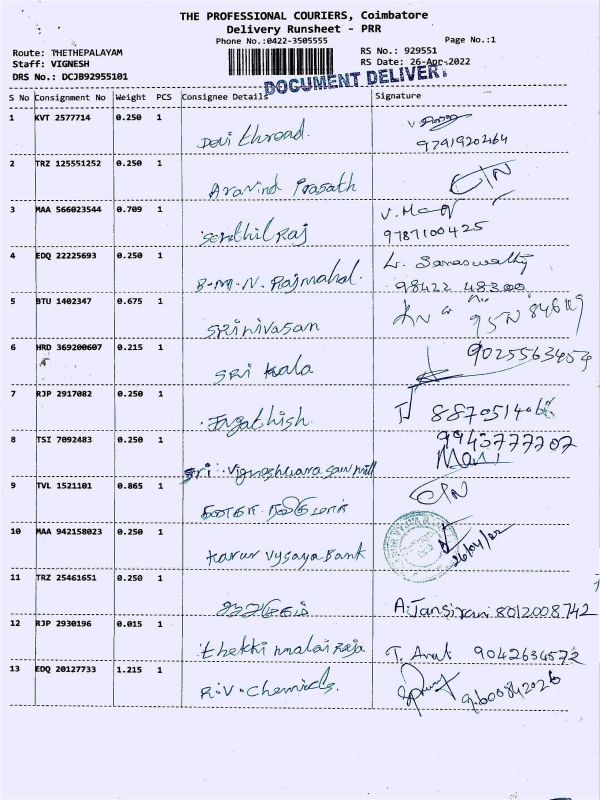 THE PROFESSIONAL COURIERS, Coimbatore
Delivery Runsheet - PRR
Phone No.:0422-3505555
Page No.:1
Route: THETHEPALAYAM
RS No.: 929551
Staff: VIGNESH
RS Date: 26-Apr-2022
DRS No.: DCJB92955101
DOCUMENT DELIVER
S No Consignment No Weight PCS Consignee Details Signature
1 KVT 2577714 0.250 1
Devi thread.
9791920464
2 TRZ 125551252 0.250 1
Aravind Prasath
3 MAA 566023544 0.709 1
Senthil Raj
9787100425
4 EDQ 22225693 0.250 1
B.M.N. Rajmahal.
Saraswathy
98422 48300
5 BTU 1402347 0.675 1
Srinivasan
6 HRD 369200607 0.215 1
Sri Kala
9025563454
7 RJP 2917082 0.250 1
Jagathish.
8 TSI 7092483 0.250 1
Sri. Vigneshwara saw mill
9943777707
Mani
9 TVL 1521101 0.865 1
10 MAA 942158023 0.250 1
Karur Vysaya Bank
26/04/22
11 TRZ 25461651 0.250 1
A.Jansirani 8012008742
12 RJP 2930196 0.015 1
thekki malai Raja
T. Arul 9042634572
13 EDQ 20127733 1.215 1
R.V. Chemicals.
9600842026